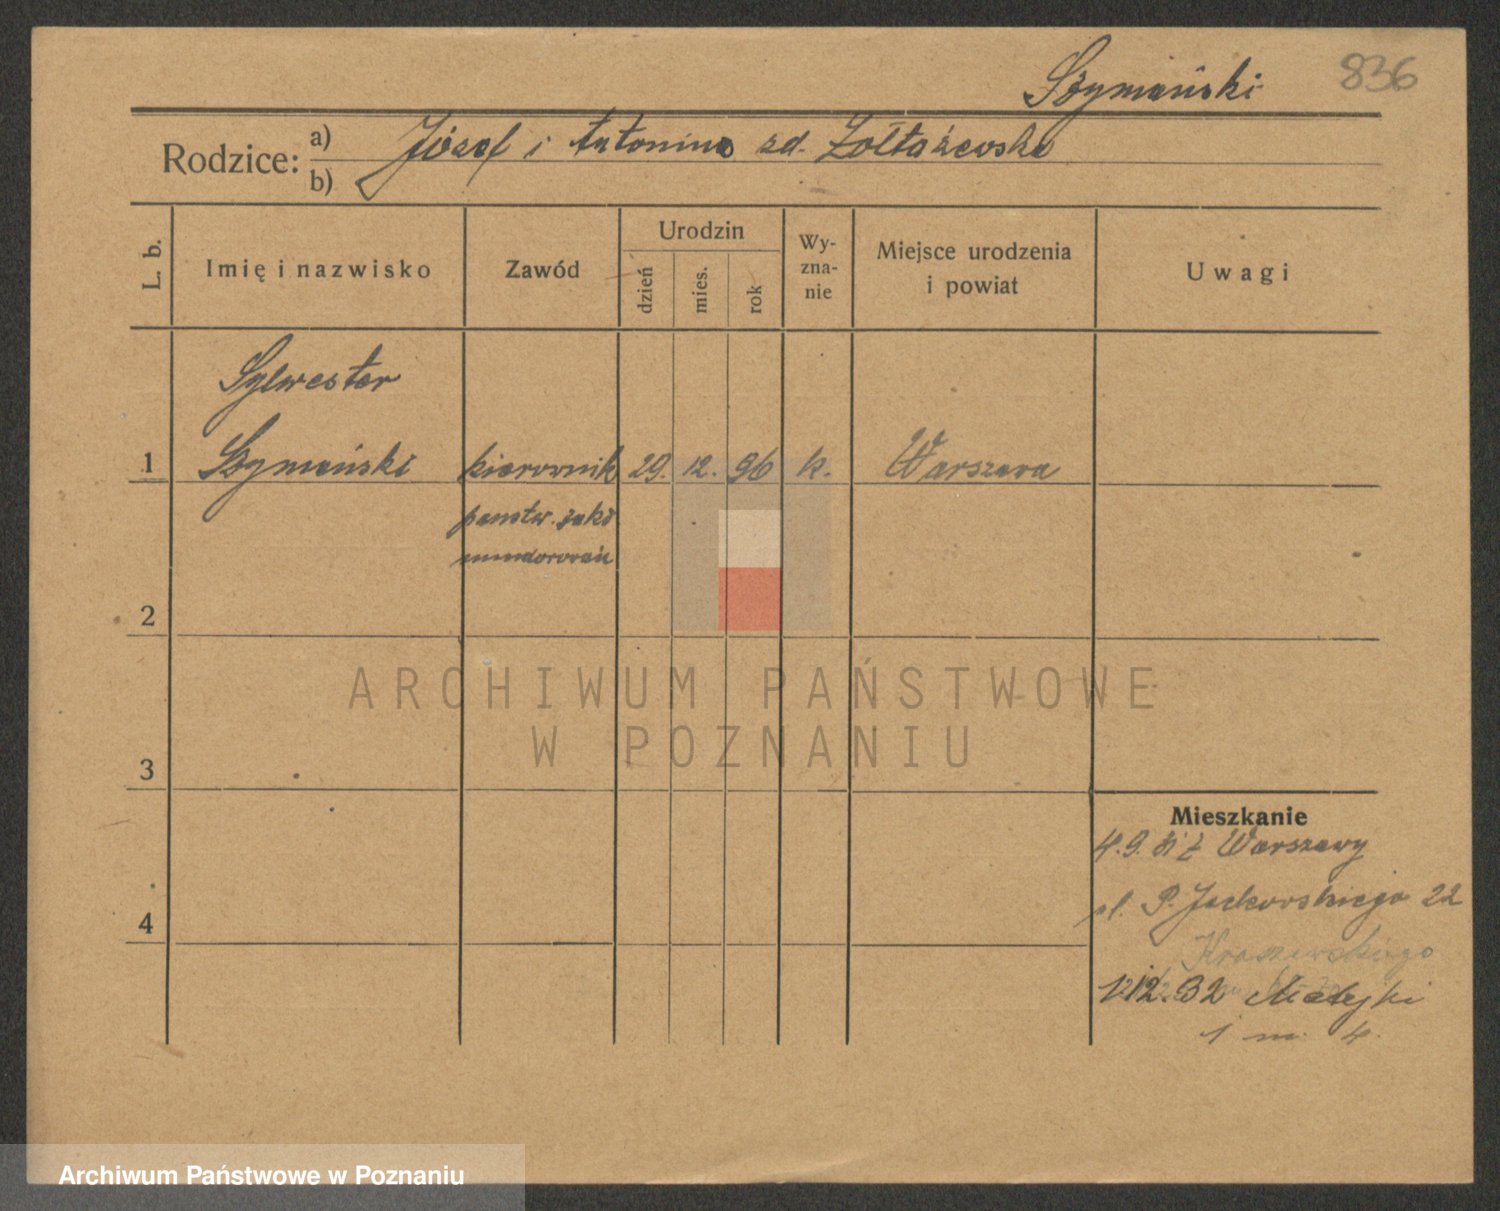 Szymański 836
Rodzice: a) Józef i Antonina zd. Żółtaszewska
b)
L. b. Imię i nazwisko Zawód Urodzin dzień mies. rok Wyznanie Miejsce urodzenia i powiat Uwagi
Sylwester
1 Szymański kierownik 29. 12. 96 k. Warszawa
państw. zakł
mundurowań
2
ARCHIWUM PAŃSTWOWE
W POZNANIU
3
Mieszkanie
4.9. z Warszawy
ul. P. Jackowskiego 22
4
Kraszewskiego
32 Matejki
1 m. 4.
Archiwum Państwowe w Poznaniu